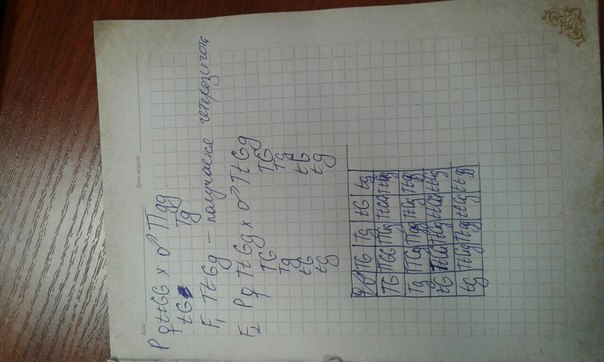 P ♀ ttGG x ♂ TTgg
tG Tg
F₁ TtGg – получается гетерозигота
F₂ P ♀ TtGg x ♂ TtGg
TG TG
Tg Tg
tG tG
tg tg
♀♂ TG Tg tG tg
TG TTGG TTGg TtGG TtGg
Tg TTGg TTgg TtGg Ttgg
tG TtGG TtGg ttGG ttGg
tg TtGg Ttgg ttGg ttgg